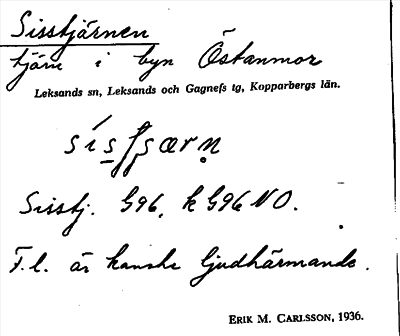 Sisstjärnen
tjärn i byn Östanmor
Leksands sn, Leksands och Gagnefs tg, Kopparbergs län.
Sisstj. G96, k G96 NO.
F.l. är kanske ljudhärmande.
ERIK M. CARLSSON, 1936.